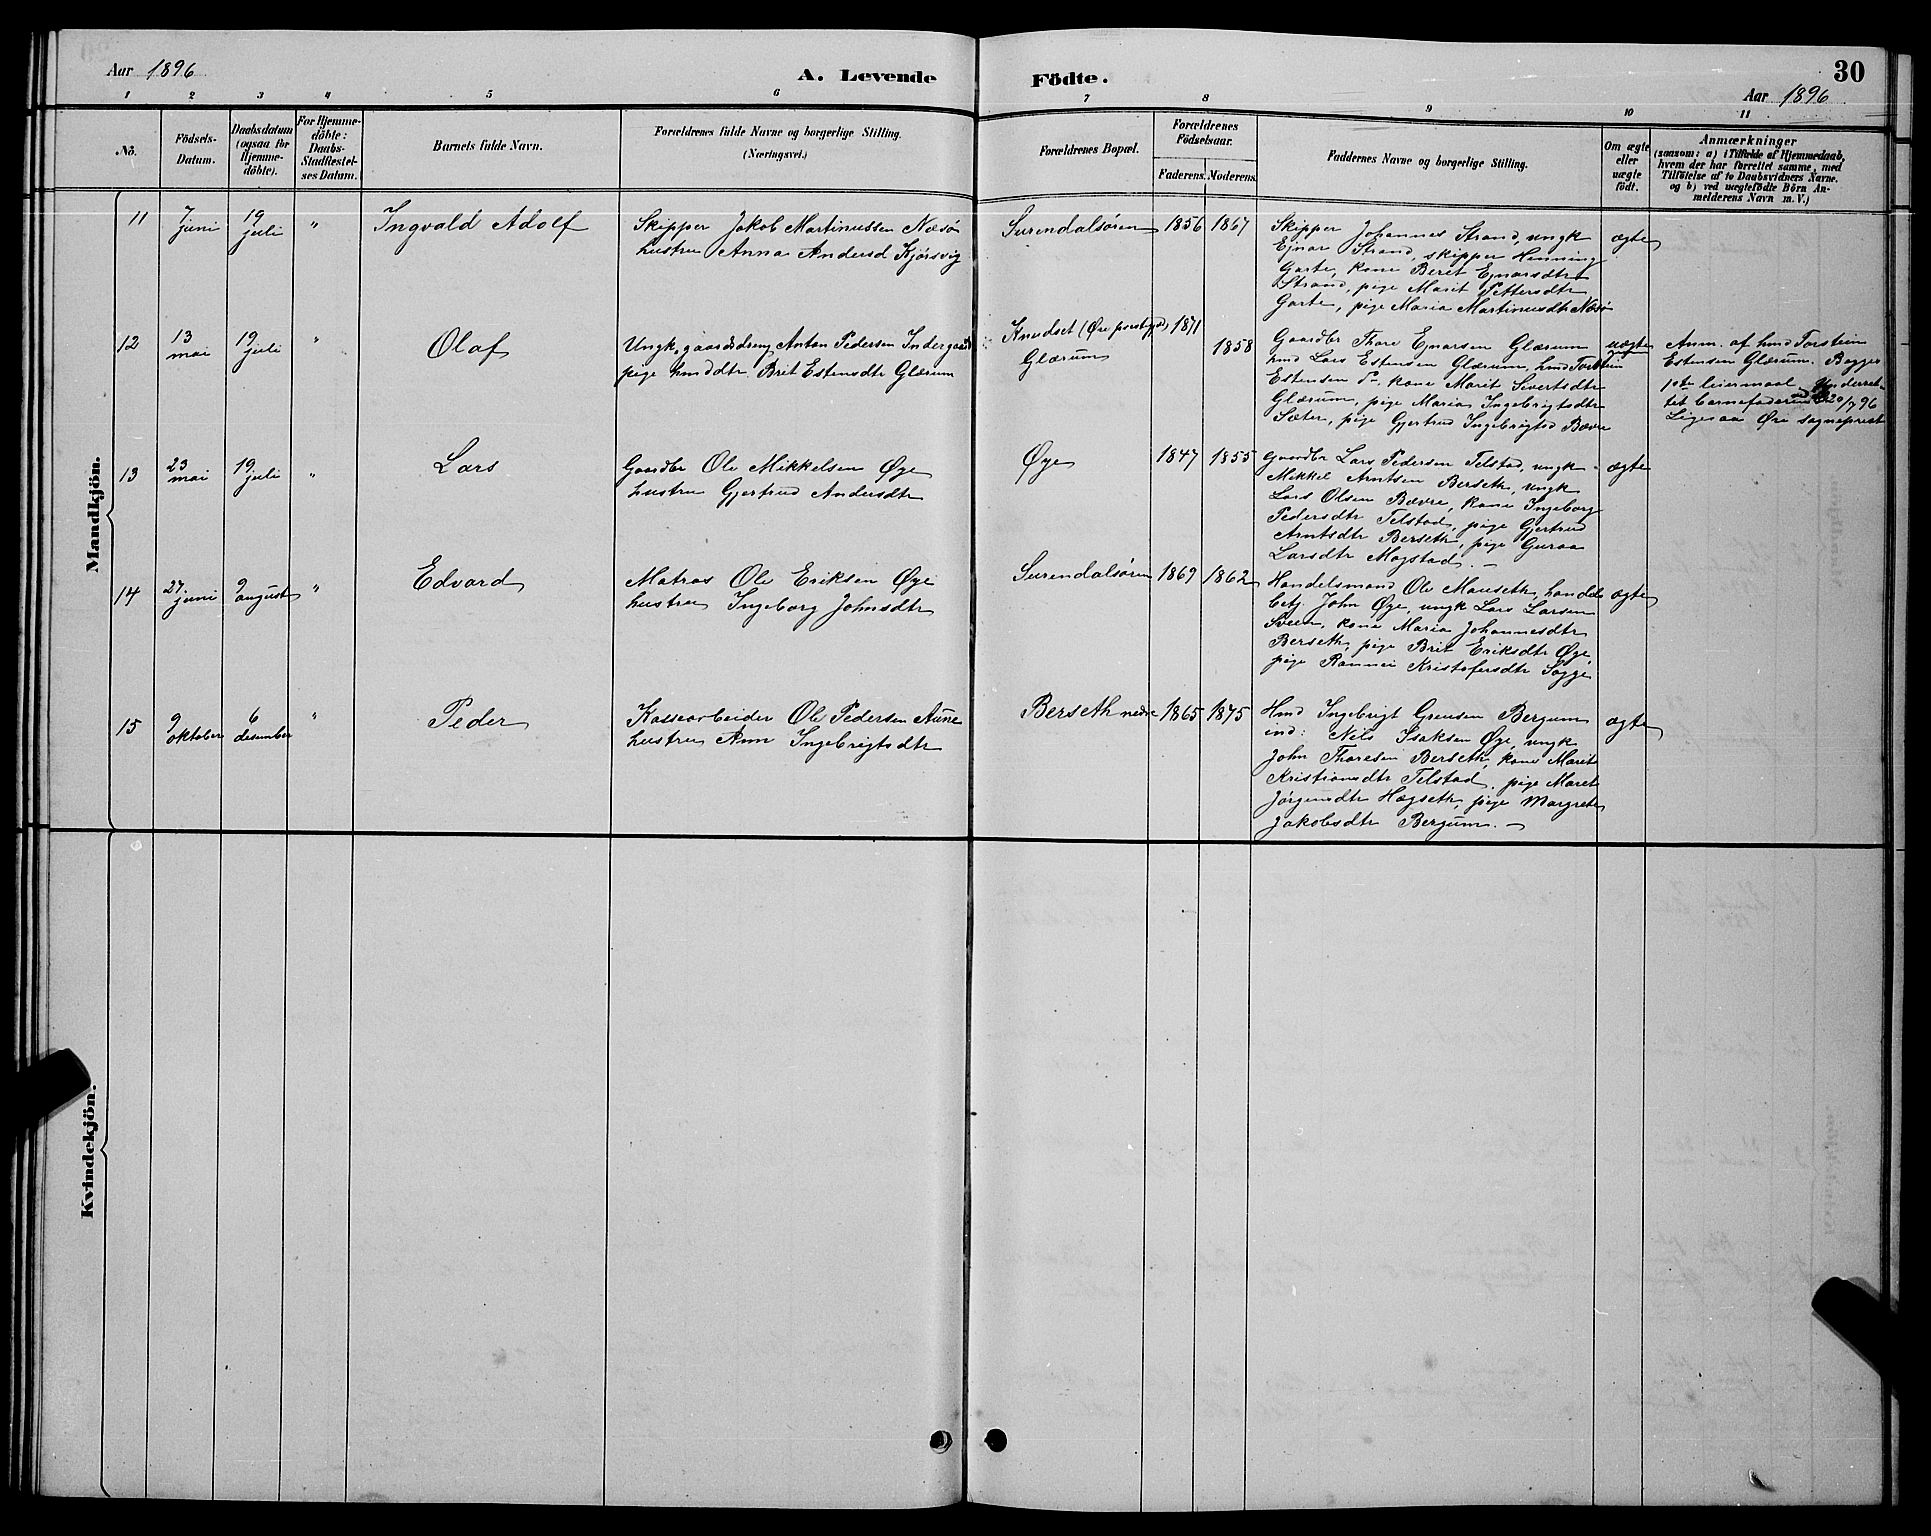 Aar 1896
A. Levende Födte.
30
Aar 1896
1 2 3 4 5 6 7 8 9 10 11
No.
Födsels-
Datum.
Daabsdatum
(ogsaa for
Hjemme-
döbte).
For Hjemme-
döbte:
Daabs-
Stadfæstel-
ses Datum.
Barnets fulde Navn.
Forældrenes fulde Navne og borgerlige Stilling.
(Næringsvei.)
Forældrenes Bopæl.
Forældrenes
Födselsaar.
Faderens. Moderens.
Faddernes Navne og borgerlige Stilling.
Om ægte
eller
uægte
födt.
Anmærkninger
(saasom: a) i Tilfælde af Hjemmedaab,
hvem der har forrettet samme, med
Tilföielse af to Daabsvidners Navne.
og b) ved uægtefödte Börn An-
melderens Navn m. V.)
Mandkjön.
11
7
juni
19
juli
"
Ingvald Adolf
Skipper Jakob Martinussen Næsø
hustru Anna Andersd Kjørsvig
Surendalsøren
1856 1867
Skipper Johannes Strand, ungk
Ejnar Strand, skipper Henning
Garte, kone Beret Ejnarsdtr
Strand, pige Marit Pettersdtr
Garte, pige Maria Martinusdtr Næsø
ægte
12
13
mai
19
juli
"
Olaf
Ungk, gaardsdreng Anton Pedersen Indergaard
pige hmddtr Brit Estensdtr Glærum
Knudset (Øre prestgjd)
Glærum
1871
1858
Gaardbr Thore Ejnarsen Glærum
hmd Lars Estensen Glærum, hmd Torstein
Estensen S., kone Marit Sivertsdtr
Glærum, pige Maria Ingebrigtsdtr
Sæter, pige Gjertrud Ingebrigtsd Bævre
uægte
Anm. af hmd Torstein
Estensen Glærum. Begges
1ste leiermaal. Underret-
tet barnefaderen 20/7 96
Ligesaa Øre sogneprest
13
23
mai
19
juli
"
Lars
Gaardbr Ole Mikkelsen Øye
hustru Gjertrud Andersdtr
Øye
1847 1855
Gaardbr Lars Pedersen Telstad, ungk
Mikkel Arntsen Berseth, ungk
Lars Olsen Bævre, kone Ingeborg
Pedersdtr Telstad, pige Gjertrud
Arntsdtr Berseth, pige Guraa
Larsdtr Mogstad. —
ægte
14
27
juni
9
august
"
Edvard
Matros Ole Eriksen Øye
hustru Ingeborg Johnsdtr
Surendalsøren
1869 1862
Handelsmand Ole Mauseth, handels
betj. John Øye, ungk Lars Larsen
Sveen, kone Maria Johannesdtr
Berseth, pige Brit Eriksdtr Øye,
pige Rannei Kristofersdtr Sogge
ægte
15
9
oktober
6
desember
"
Peder
Ole Pedersen Aune
hustru Ane Ingebrigtsdtr
Berseth nedre
1865 1875
Hmd Ingebrigt Bergum
ind: Nels Isaksen Øye, ungk
John Thoresen Berseth, kone Marit
Kristiansdtr Telstad, pige Maret
Jørgensdtr Hægseth, pige Margrete
Jakobsdtr Bergum. —
ægte
Kvindekjön.